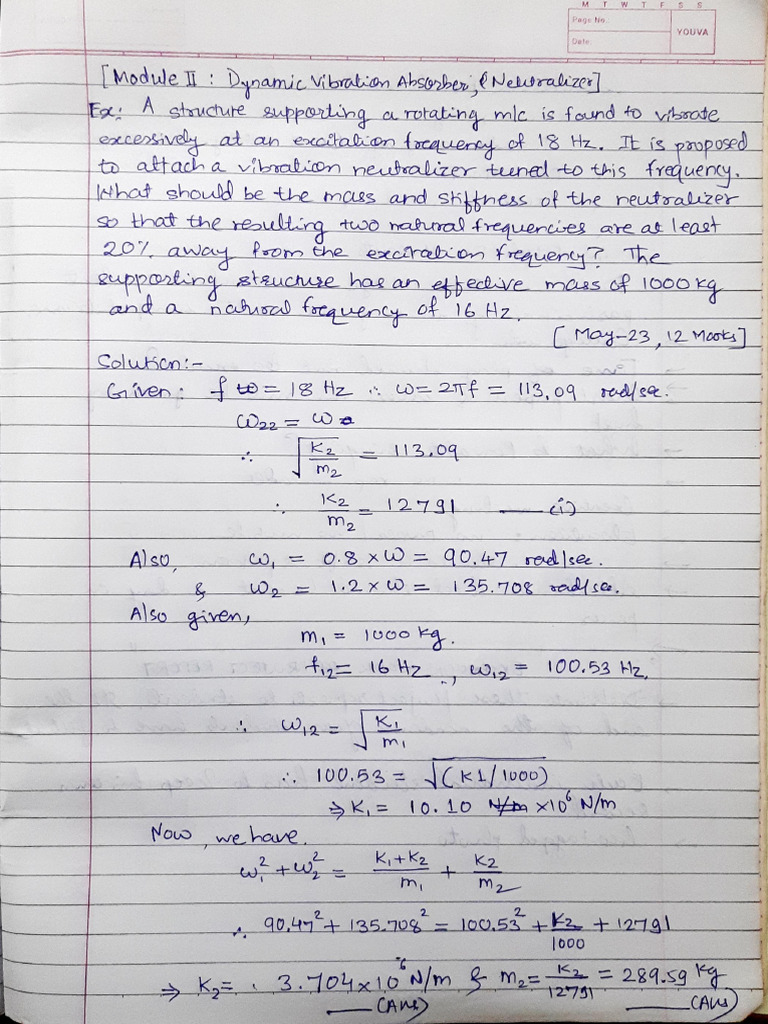 M T W T F S S
Page No.:
YOUVA
Date:
[Module II : Dynamic Vibration Absorber, (Neutralizer]
Ex: A structure supporting a rotating m/c is found to vibrate
excessively at an excitation frequency of 18 Hz. It is proposed
to attach a vibration neutralizer tuned to this frequency.
What should be the mass and stiffness of the neutralizer
so that the resulting two natural frequencies are at least
20% away from the excitation frequency? The
supporting structure has an effective mass of 1000 kg
and a natural frequency of 16 Hz.
[May-23, 12 Marks]
Solution:-
Given: f = 18 Hz ∴ ω = 2πf = 113.09 rad/sec.
ω22 = ω
∴ √(K2/m2) = 113.09
∴ K2/m2 = 12791 —(i)
Also, ω1 = 0.8 × ω = 90.47 rad/sec.
& ω2 = 1.2 × ω = 135.708 rad/sec.
Also given,
m1 = 1000 kg.
f12 = 16 Hz ., ω12 = 100.53 Hz.
∴ ω12 = √(K1/m1)
∴ 100.53 = √(K1/1000)
⇒ K1 = 10.10 N/m ×10⁶ N/m
Now, we have.
ω1² + ω2² = (K1+K2)/m1 + K2/m2
∴ 90.47² + 135.708² = 100.53² + K2/1000 + 12791
⇒ K2 = . 3.704×10⁶ N/m & m2 = K2/12791 = 289.59 kg
—(Ans) —(Ans)